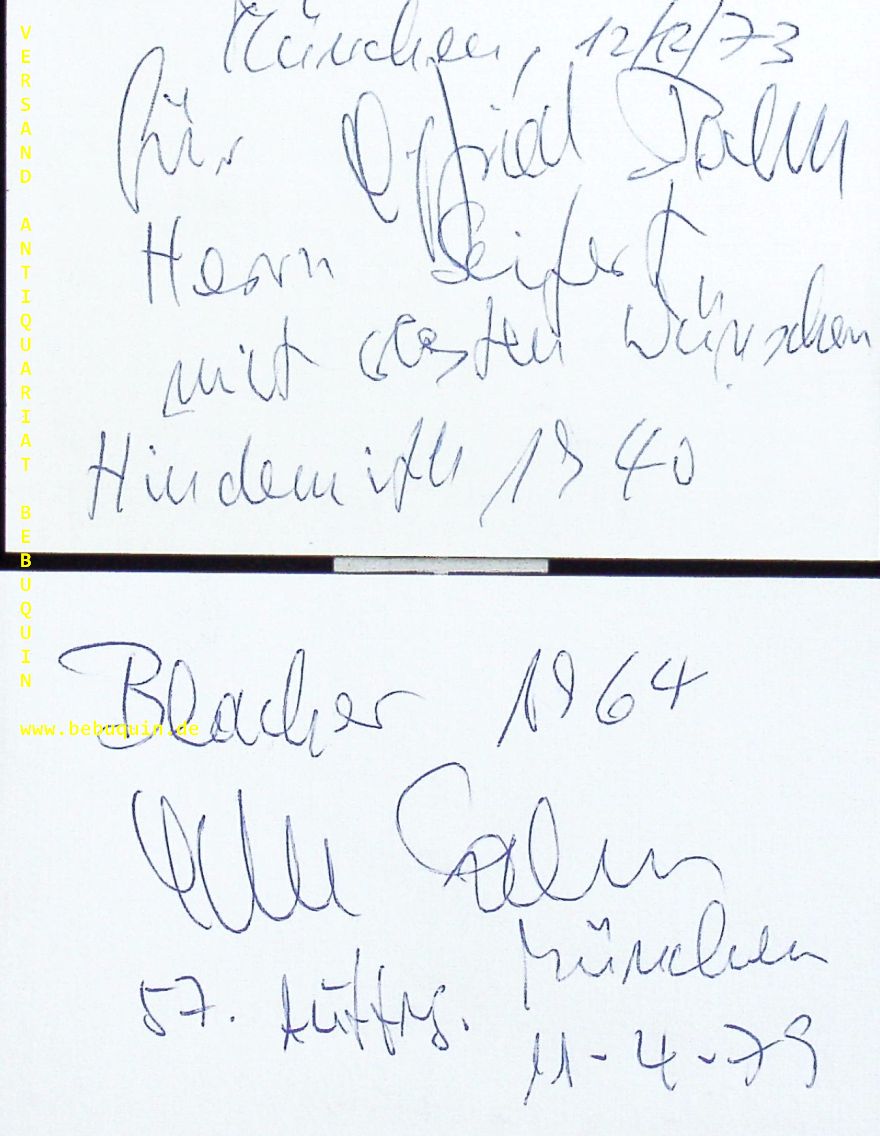 München, 12/12/73
für
Herrn Seifert
mit besten Wünschen
Hindemith 1940
Blacher 1964
57. Auffg. München
11-4-79
VERSAND ANTIQUARIAT BEBUQUIN
www.bebuquin.de